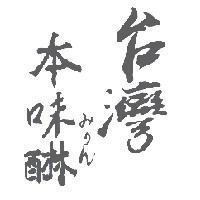 台灣
本味醂
みりん